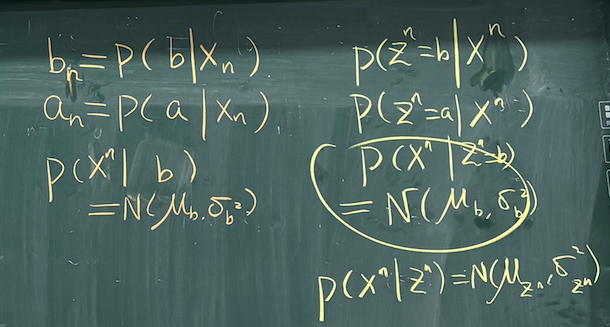 bₙ = P( b | Xₙ )
aₙ = P( a | Xₙ )
P( Xⁿ | b )
= N( μ_b, σ_b² )
p( zⁿ = b | Xⁿ )
p( zⁿ = a | Xⁿ )
p( Xⁿ | zⁿ = b )
= N( μ_b, σ_b² )
p( Xⁿ | zⁿ ) = N( μ_zⁿ, σ²_zⁿ )